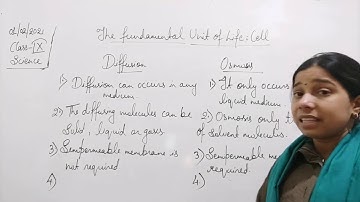 01/02/2021
Class-IX
Science
The Fundamental Unit of Life: Cell
Diffusion
1) Diffusion can occurs in any
medium
2) The diffusing molecules can be
Solid, liquid or gases
3) Semipermeable membrane is
not required
4)
Osmosis
1) It only occurs
liquid medium
2) Osmosis only
of solvent molecules.
3) Semipermeable me
required
4)